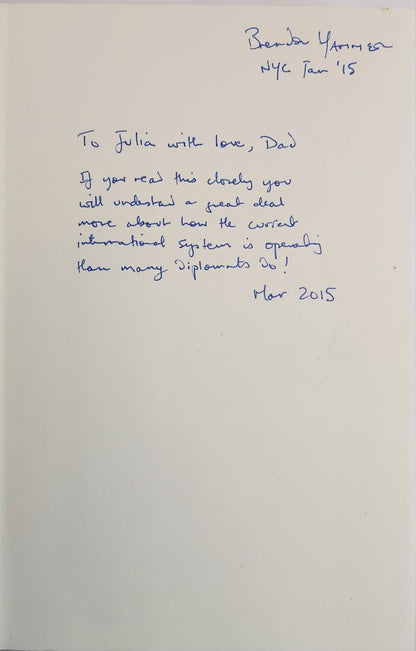 Brendan
NYC Jan '15
To Julia with love, Dad
If you read this closely you
will understand a great deal
more about how the current
international system is operating
than many Diplomats Do!
Mar 2015